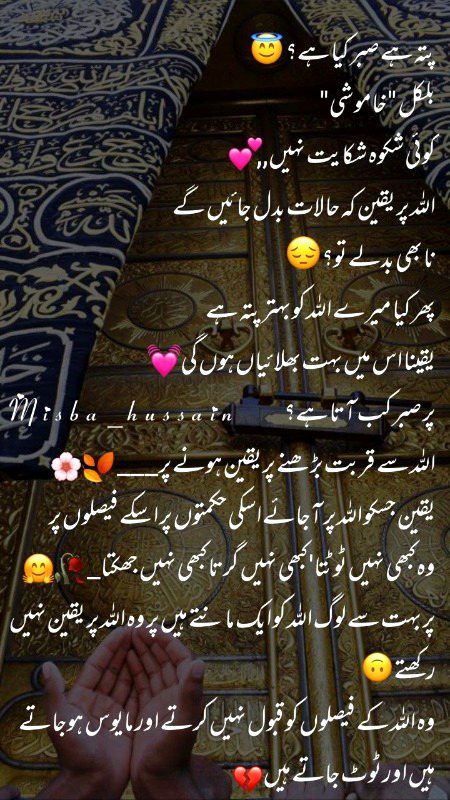 پتہ ہے صبر کیا ہے؟ 😇
بلکل "خاموشی"
کوئی شکوہ شکایت نہیں,,💕
اللہ پر یقین کہ حالات بدل جائیں گے
نا بھی بدلے تو؟ 😔
پھر کیا میرے اللہ کو بہتر پتہ ہے
یقینا اس میں بہت بھلائیاں ہوں گی 💓
پر صبر کب آتا ہے؟
Misba_hussain
اللہ سے قربت بڑھنے پر یقین ہونے پر___ 🍂🌸
یقین جسکو اللہ پر آ جائے اسکی حکمتوں پر اسکے فیصلوں پر
وہ کبھی نہیں ٹوٹتا'کبھی نہیں گرتا کبھی نہیں جھکتا_🥀🤗
پر بہت سے لوگ اللہ کو ایک مانتے ہیں پر وہ اللہ پر یقین نہیں
رکھتے 🙃
وہ اللہ کے فیصلوں کو قبول نہیں کرتے اور مایوس ہو جاتے
ہیں اور ٹوٹ جاتے ہیں 💔